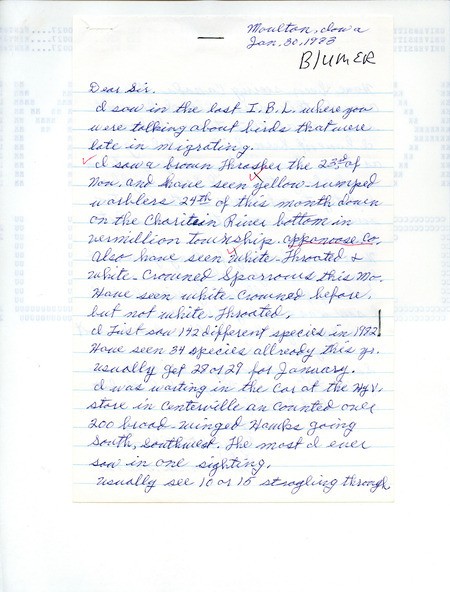 Moulton, Iowa
Jan. 30, 1983
BlUMER
Dear Sir.
I saw in the last I.B.L. where you
were talking about birds that were
late in migrating.
I saw a brown Thrasher the 23rd of
Nov. and have seen yellow-rumped
warblers 24th of this month down
on the Charitein River bottom in
vermillion township. Appanoose Co.
Also have seen white-Throated &
white-Crowned Sparrows this Mo.
Have seen white-Crowned before,
but not white-Throated.
I Just saw 142 different species in 1982
Have seen 34 species allready this yr.
usually get 28 or 29 for January.
I was waiting in the car at the Hy V.
store in Centerville an counted over
200 broad-winged Hawks going
South, Southwest. The most I ever
saw in one sighting.
usually see 10 or 15 stragling through.